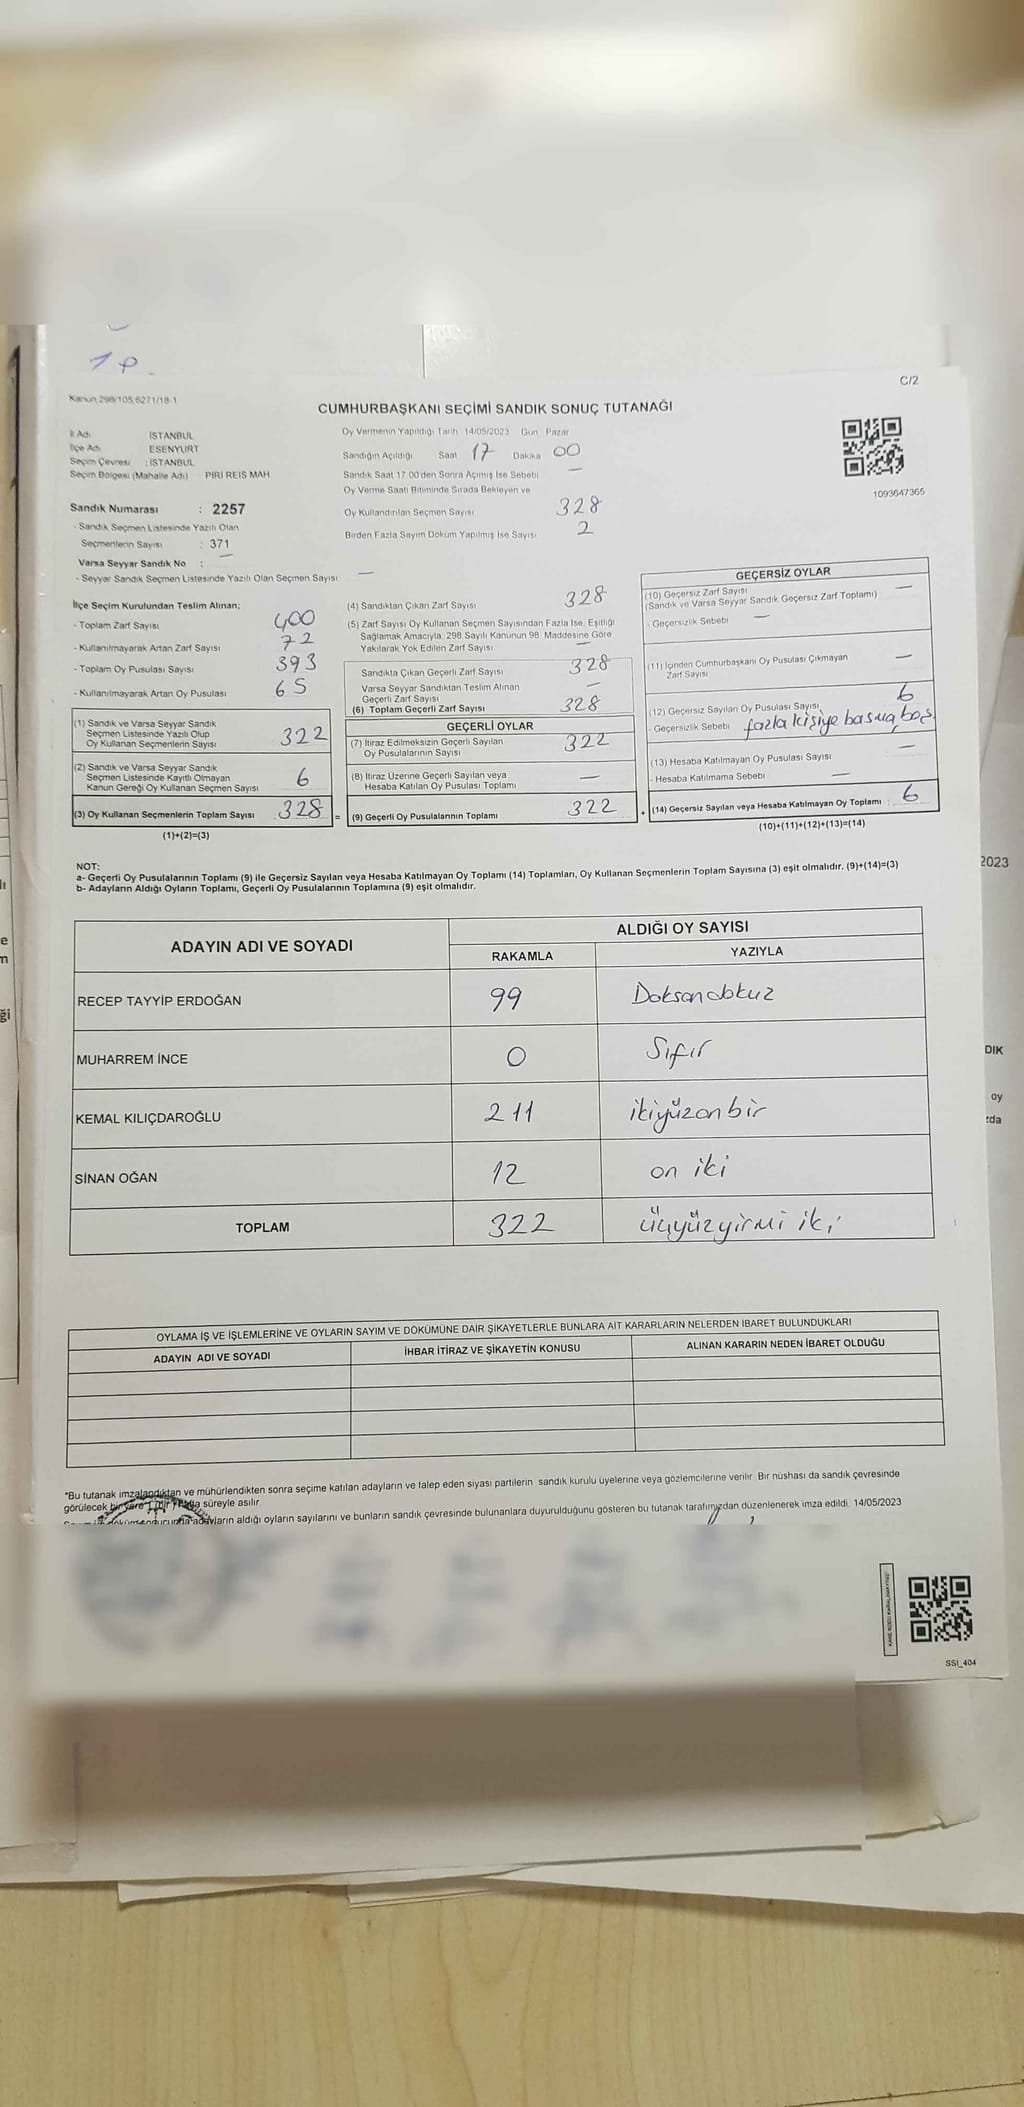 1 P.
C/2
Kanun 298/105,6271/18-1
CUMHURBAŞKANI SEÇİMİ SANDIK SONUÇ TUTANAĞI
İl Adı İSTANBUL
İlçe Adı ESENYURT
Seçim Çevresi : İSTANBUL
Seçim Bölgesi (Mahalle Adı) PİRİ REİS MAH.
Oy Vermenin Yapıldığı Tarih 14/05/2023 Gün Pazar
Sandığın Açıldığı Saat 17 Dakika 00
Sandık Saat 17.00'den Sonra Açılmış İse Sebebi —
Oy Verme Saati Bitiminde Sırada Bekleyen ve
Oy Kullandırılan Seçmen Sayısı 328
Birden Fazla Sayım Döküm Yapılmış İse Sayısı 2
1093647365
Sandık Numarası : 2257
- Sandık Seçmen Listesinde Yazılı Olan
Seçmenlerin Sayısı : 371
Varsa Seyyar Sandık No : —
- Seyyar Sandık Seçmen Listesinde Yazılı Olan Seçmen Sayısı: —
İlçe Seçim Kurulundan Teslim Alınan;
- Toplam Zarf Sayısı 400
- Kullanılmayarak Artan Zarf Sayısı 72
- Toplam Oy Pusulası Sayısı 393
- Kullanılmayarak Artan Oy Pusulası 65
(1) Sandık ve Varsa Seyyar Sandık
Seçmen Listesinde Yazılı Olup
Oy Kullanan Seçmenlerin Sayısı 322
(2) Sandık ve Varsa Seyyar Sandık
Seçmen Listesinde Kayıtlı Olmayan
Kanun Gereği Oy Kullanan Seçmen Sayısı 6
(3) Oy Kullanan Seçmenlerin Toplam Sayısı 328 =
(1)+(2)=(3)
(4) Sandıktan Çıkan Zarf Sayısı 328
(5) Zarf Sayısı Oy Kullanan Seçmen Sayısından Fazla İse, Eşitliği
Sağlamak Amacıyla, 298 Sayılı Kanunun 98. Maddesine Göre
Yakılarak Yok Edilen Zarf Sayısı —
Sandıkta Çıkan Geçerli Zarf Sayısı 328
Varsa Seyyar Sandıktan Teslim Alınan
Geçerli Zarf Sayısı —
(6) Toplam Geçerli Zarf Sayısı 328
GEÇERLİ OYLAR
(7) İtiraz Edilmeksizin Geçerli Sayılan
Oy Pusulalarının Sayısı 322
(8) İtiraz Üzerine Geçerli Sayılan veya
Hesaba Katılan Oy Pusulası Toplamı —
(9) Geçerli Oy Pusulalarının Toplamı 322 +
GEÇERSİZ OYLAR
(10) Geçersiz Zarf Sayısı —
(Sandık ve Varsa Seyyar Sandık Geçersiz Zarf Toplamı)
- Geçersizlik Sebebi —
(11) İçinden Cumhurbaşkanı Oy Pusulası Çıkmayan
Zarf Sayısı —
(12) Geçersiz Sayılan Oy Pusulası Sayısı 6
- Geçersizlik Sebebi fazla kişiye basma, boş
(13) Hesaba Katılmayan Oy Pusulası Sayısı —
- Hesaba Katılmama Sebebi —
(14) Geçersiz Sayılan veya Hesaba Katılmayan Oy Toplamı : 6
(10)+(11)+(12)+(13)=(14)
NOT:
a- Geçerli Oy Pusulalarının Toplamı (9) ile Geçersiz Sayılan veya Hesaba Katılmayan Oy Toplamı (14) Toplamları, Oy Kullanan Seçmenlerin Toplam Sayısına (3) eşit olmalıdır. (9)+(14)=(3)
b- Adayların Aldığı Oyların Toplamı, Geçerli Oy Pusulalarının Toplamına (9) eşit olmalıdır.
ADAYIN ADI VE SOYADI
ALDIĞI OY SAYISI
RAKAMLA YAZIYLA
RECEP TAYYİP ERDOĞAN 99 Doksandokuz
MUHARREM İNCE 0 Sıfır
KEMAL KILIÇDAROĞLU 211 ikiyüzonbir
SİNAN OĞAN 12 on iki
TOPLAM 322 üçyüzyirmi iki
OYLAMA İŞ VE İŞLEMLERİNE VE OYLARIN SAYIM VE DÖKÜMÜNE DAİR ŞİKAYETLERLE BUNLARA AİT KARARLARIN NELERDEN İBARET BULUNDUKLARI
ADAYIN ADI VE SOYADI İHBAR İTİRAZ VE ŞİKAYETİN KONUSU ALINAN KARARIN NEDEN İBARET OLDUĞU
*Bu tutanak imzalandıktan ve mühürlendikten sonra seçime katılan adayların ve talep eden siyasi partilerin sandık kurulu üyelerine veya gözlemcilerine verilir. Bir nüshası da sandık çevresinde
görülecek bir yere 1 (bir) hafta süreyle asılır.
adayların aldığı oyların sayılarını ve bunların sandık çevresinde bulunanlara duyurulduğunu gösteren bu tutanak tarafımızdan düzenlenerek imza edildi. 14/05/2023
SSI_404
2023
DIK
oy